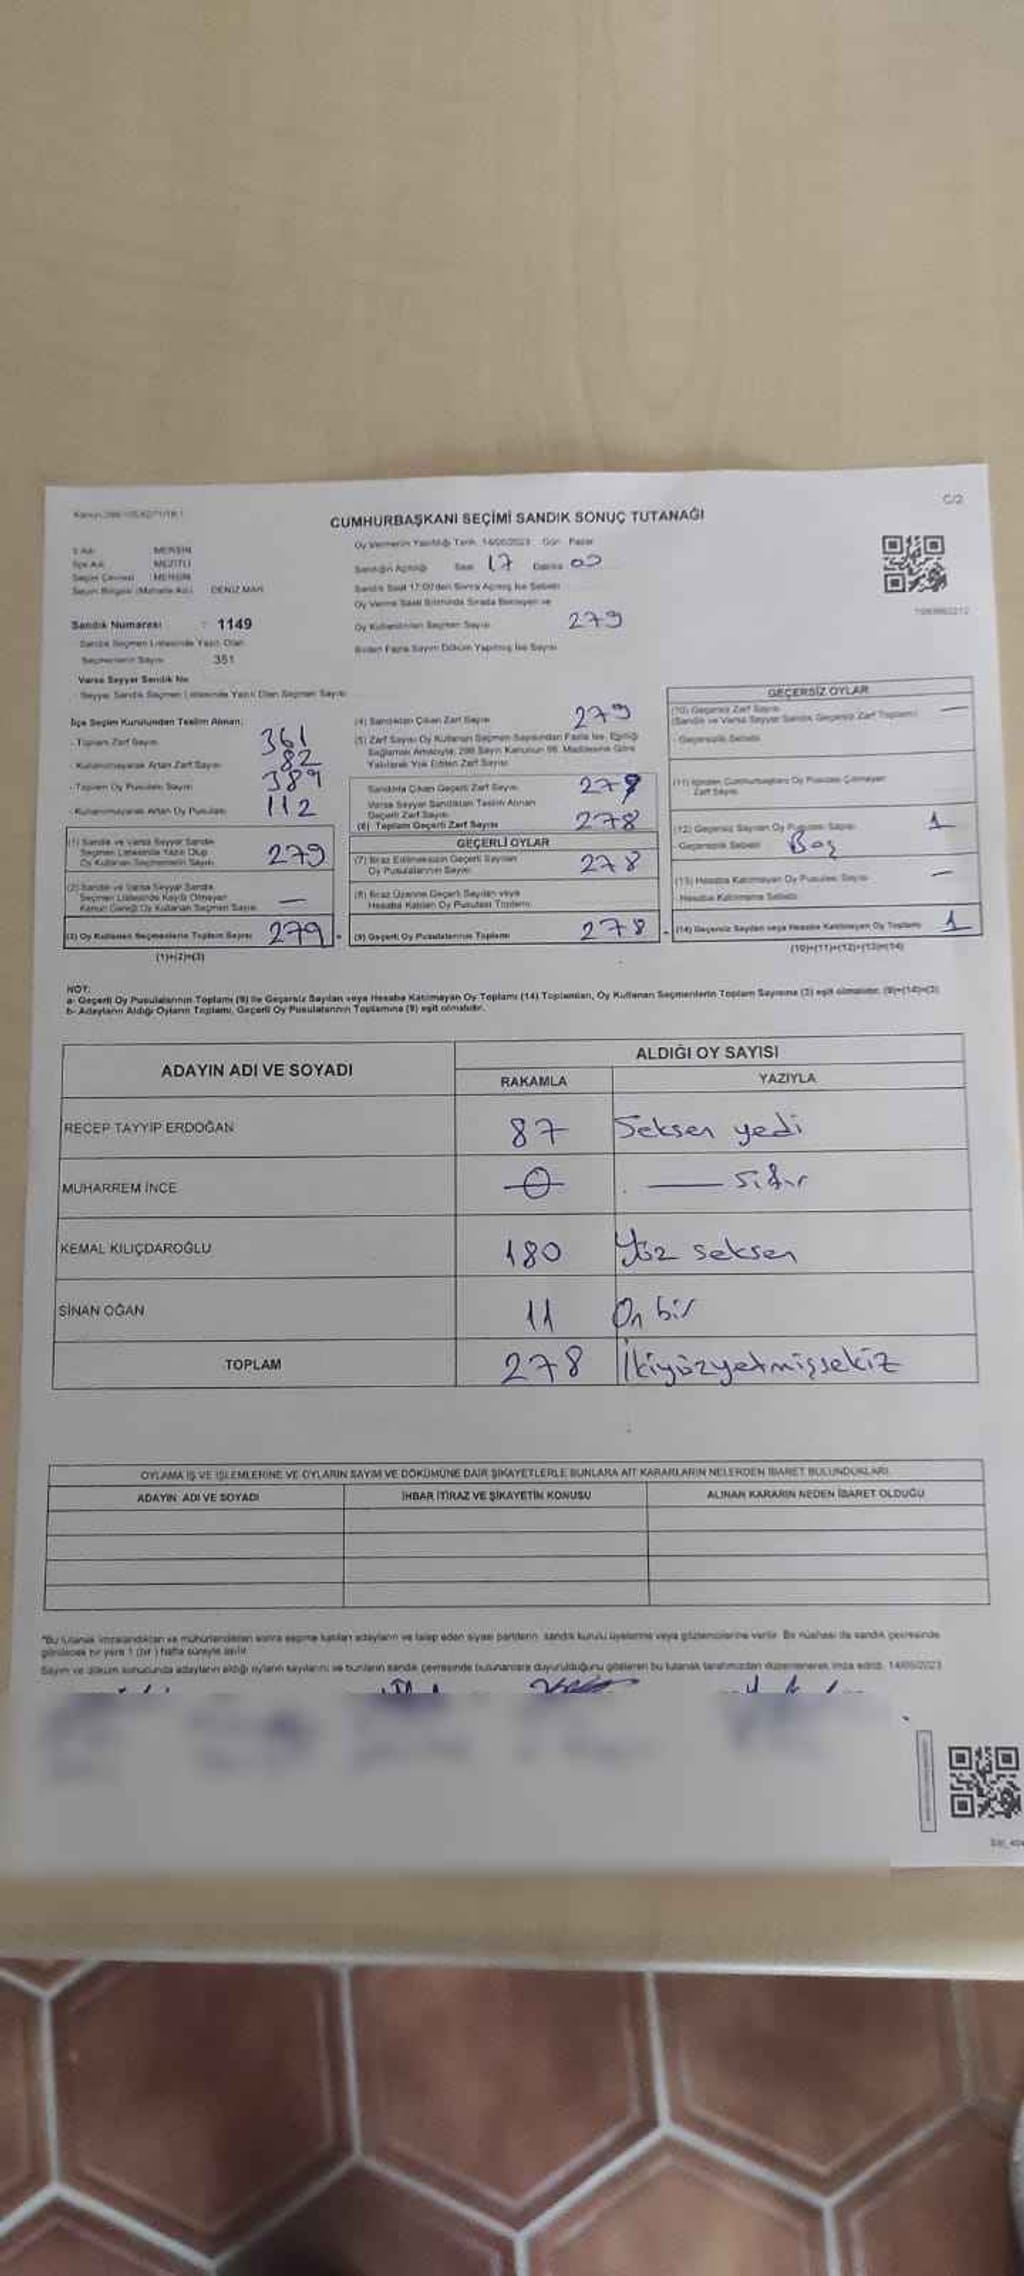 C/2
CUMHURBAŞKANI SEÇİMİ SANDIK SONUÇ TUTANAĞI
İl Adı MERSİN
İlçe Adı MEZİTLİ
Seçim Çevresi MERSİN
Seçim Bölgesi (Mahalle Adı) DENİZ MAH.
Oy Vermenin Yapıldığı Tarih 14/05/2023 Gün Pazar
Sandığın Açıldığı Saat 17 Dakika
Sandık Saat 17:00'den Sonra Açılmış İse Sebebi
Oy Verme Saati Bitiminde Sırada Bekleyen ve
Oy Kullandırılan Seçmen Sayısı 279
Birden Fazla Sayım Döküm Yapılmış İse Sayısı
Sandık Numarası : 1149
Sandık Seçmen Listesinde Yazılı Olan
Seçmenlerin Sayısı 351
Varsa Seyyar Sandık No
Seyyar Sandık Seçmen Listesinde Yazılı Olan Seçmen Sayısı
İlçe Seçim Kurulundan Teslim Alınan;
- Toplam Zarf Sayısı 361
- Kullanılmayarak Artan Zarf Sayısı 82
- Toplam Oy Pusulası Sayısı 389
- Kullanılmayarak Artan Oy Pusulası 112
(1) Sandık ve Varsa Seyyar Sandık
Seçmen Listesinde Yazılı Olup
Oy Kullanan Seçmenlerin Sayısı 279
(2) Sandık ve Varsa Seyyar Sandık
Seçmen Listesinde Kayıtlı Olmayan
Kanun Gereği Oy Kullanan Seçmen Sayısı —
(3) Oy Kullanan Seçmenlerin Toplam Sayısı 279
(1)+(2)=(3)
(4) Sandıktan Çıkan Zarf Sayısı 279
(5) Zarf Sayısı Oy Kullanan Seçmen Sayısından Fazla İse, Eşitliği
Sağlamak Amacıyla; 298 Sayılı Kanunun 98. Maddesine Göre
Yakılarak Yok Edilen Zarf Sayısı
Sandıkta Çıkan Geçerli Zarf Sayısı
Varsa Seyyar Sandıktan Teslim Alınan
Geçerli Zarf Sayısı
(6) Toplam Geçerli Zarf Sayısı 278
GEÇERLİ OYLAR
(7) İtiraz Edilmeksizin Geçerli Sayılan
Oy Pusulalarının Sayısı 278
(8) İtiraz Üzerine Geçerli Sayılan veya
Hesaba Katılan Oy Pusulası Toplamı
(9) Geçerli Oy Pusulalarının Toplamı 278
GEÇERSİZ OYLAR
(10) Geçersiz Zarf Sayısı —
(Sandık ve Varsa Seyyar Sandık Geçersiz Zarf Toplamı)
Geçersizlik Sebebi
(11) İçinden Cumhurbaşkanı Oy Pusulası Çıkmayan
Zarf Sayısı
(12) Geçersiz Sayılan Oy Pusulası Sayısı 1
Geçersizlik Sebebi Boş
(13) Hesaba Katılmayan Oy Pusulası Sayısı —
Hesaba Katılmama Sebebi
(14) Geçersiz Sayılan veya Hesaba Katılmayan Oy Toplamı 1
(10)+(11)+(12)+(13)=(14)
NOT:
a- Geçerli Oy Pusulalarının Toplamı (9) ile Geçersiz Sayılan veya Hesaba Katılmayan Oy Toplamı (14) Toplamları, Oy Kullanan Seçmenlerin Toplam Sayısına (3) eşit olmalıdır. (9)+(14)=(3)
b- Adayların Aldığı Oyların Toplamı, Geçerli Oy Pusulalarının Toplamına (9) eşit olmalıdır.
ADAYIN ADI VE SOYADI
ALDIĞI OY SAYISI
RAKAMLA YAZIYLA
RECEP TAYYİP ERDOĞAN 87 Seksen yedi
MUHARREM İNCE 0 — sıfır
KEMAL KILIÇDAROĞLU 180 Yüz seksen
SİNAN OĞAN 11 On bir
TOPLAM 278 İkiyüzyetmişsekiz
OYLAMA İŞ VE İŞLEMLERİNE VE OYLARIN SAYIM VE DÖKÜMÜNE DAİR ŞİKAYETLERLE BUNLARA AİT KARARLARIN NELERDEN İBARET BULUNDUKLARI
ADAYIN ADI VE SOYADI İHBAR İTİRAZ VE ŞİKAYETİN KONUSU ALINAN KARARIN NEDEN İBARET OLDUĞU
*Bu tutanak imzalandıktan ve mühürlendikten sonra seçime katılan adayların ve talep eden siyasi partilerin, sandık kurulu üyelerine veya gözlemcilerine verilir. Bir nüshası da sandık çevresinde
görülecek bir yere 1 (bir) hafta süreyle asılır.
Sayım ve döküm sonucunda adayların aldığı oyların sayılarını ve bunların sandık çevresinde bulunanlara duyurulduğunu gösteren bu tutanak tarafımızdan düzenlenerek imza edildi. 14/05/2023